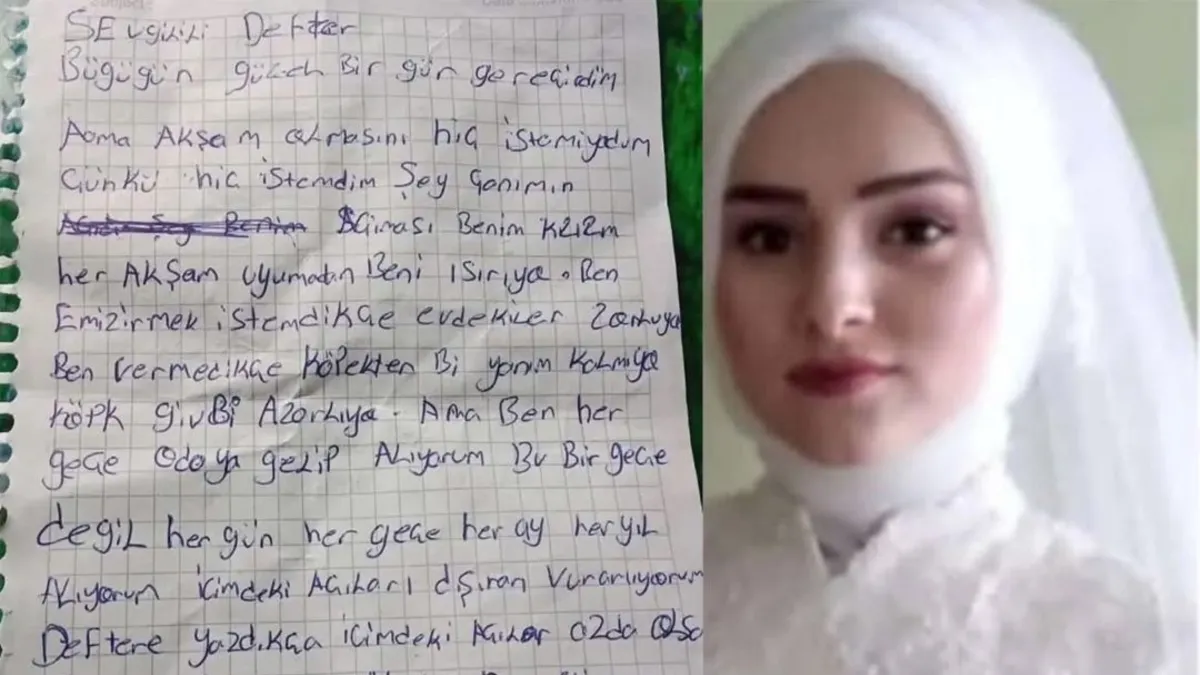 SEvgiLiLi Defter
Bügügün güzel Bir gün gereçirdim
Aoma AKŞam oLmasını hiç istemiyodum
Çünkü hiç istemdim Şey Canımın
Benim
Benim Kızım
her AKŞam uyumadan Beni ısırıya. Ben
Emizirmek istemdikçe evdekiler Zorluya
Ben vermedikçe Köpekten Bi yanım KaLmıya
Köpk givBi Azorlıya. Ama Ben her
geçe Odaya geLip ALıyorum Bu Bir geçe
degiL her gün her geçe her ay her yıL
ALıyorum içimdeki Açıları dışıran Vurarlıyorum
Deftere yazdıkça içimdeki Açılar azda oLsa